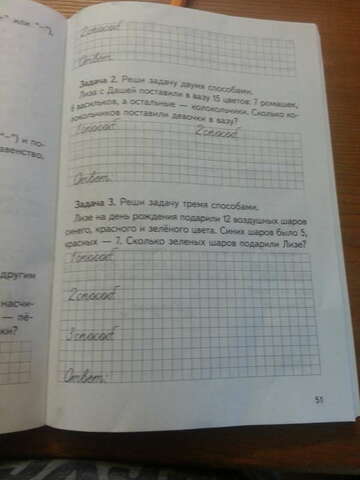 " или "–"),
"–") и по-
авенство,
другим
насчи-
— пё-
ки?
2 способ
Ответ:
Задача 2. Реши задачу двумя способами.
Лиза с Дашей поставили в вазу 15 цветов: 7 ромашек,
6 васильков, а остальные — колокольчики. Сколько ко-
локольчиков поставили девочки в вазу?
1 способ 2 способ
Ответ:
Задача 3. Реши задачу тремя способами.
Лизе на день рождения подарили 12 воздушных шаров
синего, красного и зелёного цвета. Синих шаров было 5,
красных — 7. Сколько зеленых шаров подарили Лизе?
1 способ
2 способ
3 способ
Ответ:
51